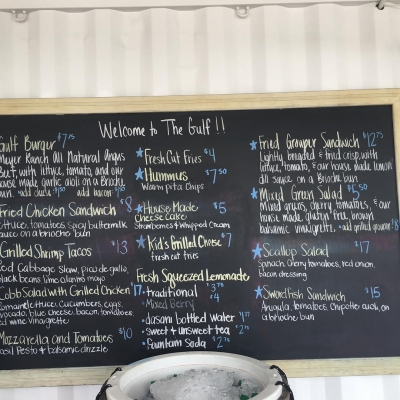 Welcome to The Gulf!!
Gulf Burger $7.75
Meyer Ranch All Natural Angus
Beef, with lettuce, tomato, and our
house made garlic aioli on a Brioche
bun. add bacon
Fried Chicken Sandwich $8
lettuce, tomatoes, spicy buttermilk
sauce on a brioche bun
Grilled Shrimp Tacos $13
Red Cabbage Slaw, pico de gallo,
black beans lime aioli mayo
Cobb Salad with Grilled Chicken $17
Romaine lettuce, cucumbers, eggs,
avocado, blue cheese, bacon, tomatoes,
red wine vinaigrette
Mozzarella and Tomatoes $10
Basil Pesto & balsamic drizzle
Fresh Cut Fries $4
Hummus $7.50
Warm pita chips
House Made $5
Cheese Cake
Strawberries & Whipped Cream
Kid's Grilled Cheese $7
fresh cut fries
Fresh Squeezed Lemonade
• traditional $3.50
• Mixed Berry $4
• dasani bottled water
• sweet & unsweet tea
• fountain soda
Fried Grouper Sandwich $12.75
Lightly breaded & fried crisp, with
lettuce, tomato, & our house made lemon
dill sauce on a Brioche bun.
Mixed Green Salad $5.50
Mixed greens, cherry tomatoes, & our
house made, gluten free brown
balsamic vinaigrette. add grilled grouper
Scallop Salad $17
Spinach, cherry tomatoes, red onion,
bacon dressing
Swordfish Sandwich $15
Arugula, tomatoes, Chipotle aioli, on
a brioche bun